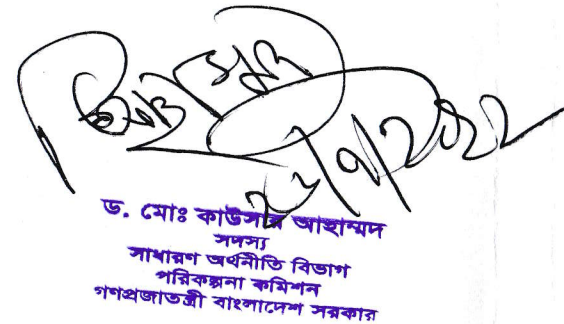 ড. মোঃ কাউসার আহাম্মদ
সদস্য
সাধারণ অর্থনীতি বিভাগ
পরিকল্পনা কমিশন
গণপ্রজাতন্ত্রী বাংলাদেশ সরকার